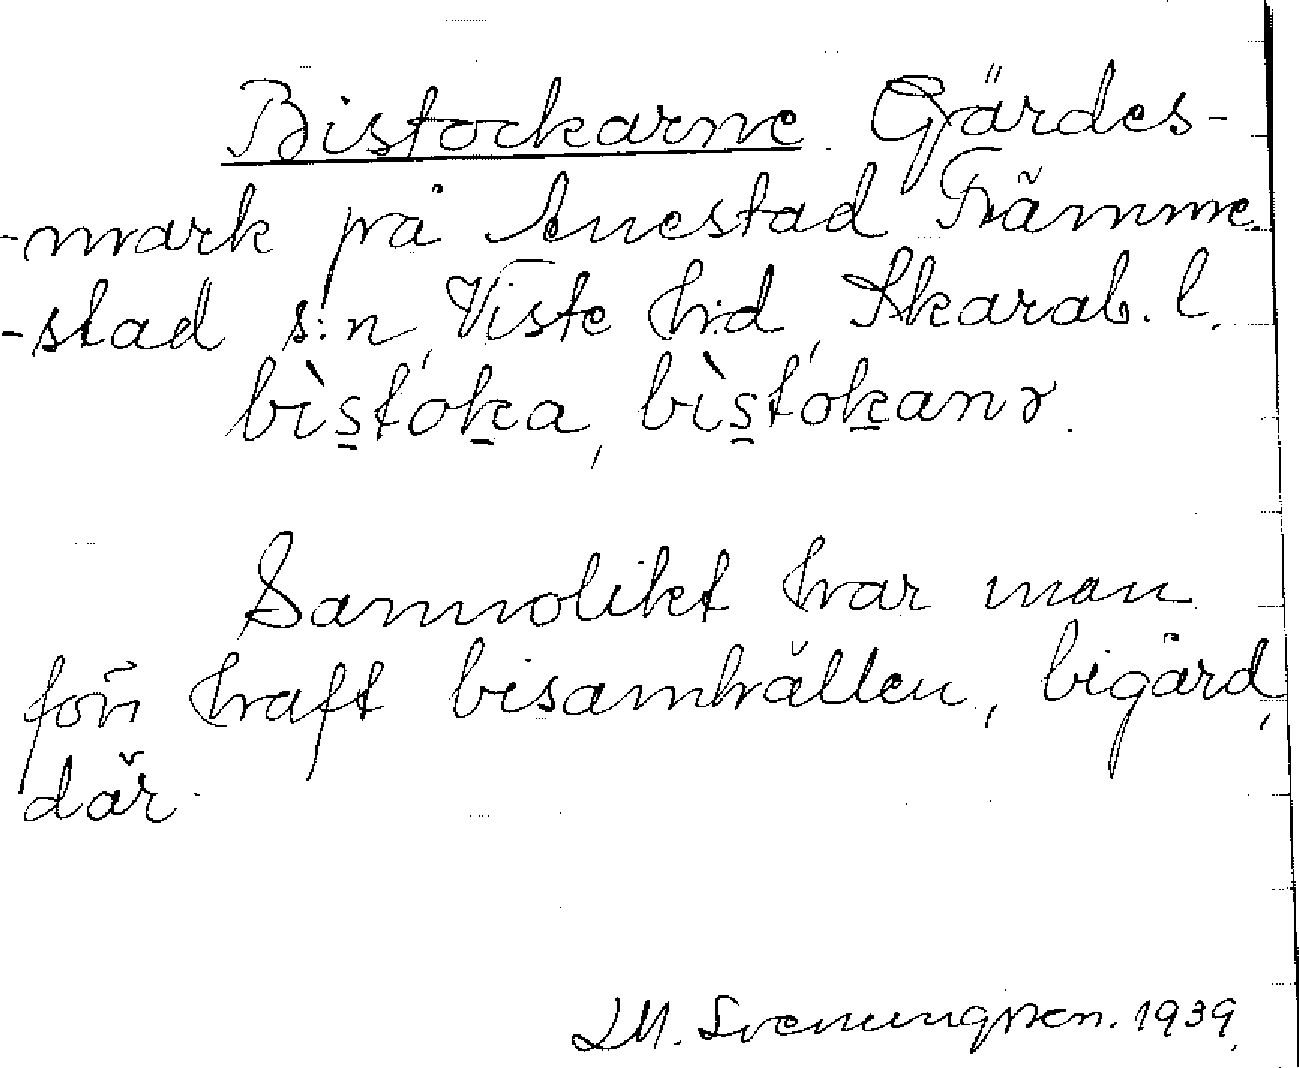 Bistockarne Gärdes-
-mark på Anestad Främme-
-stad s:n, Viste hrd, Skarab. l.
bìstòka, bìstòkanr.
Sannolikt har man
förr haft bisamhällen, bigård,
där.
LM. Svenungsson. 1939.